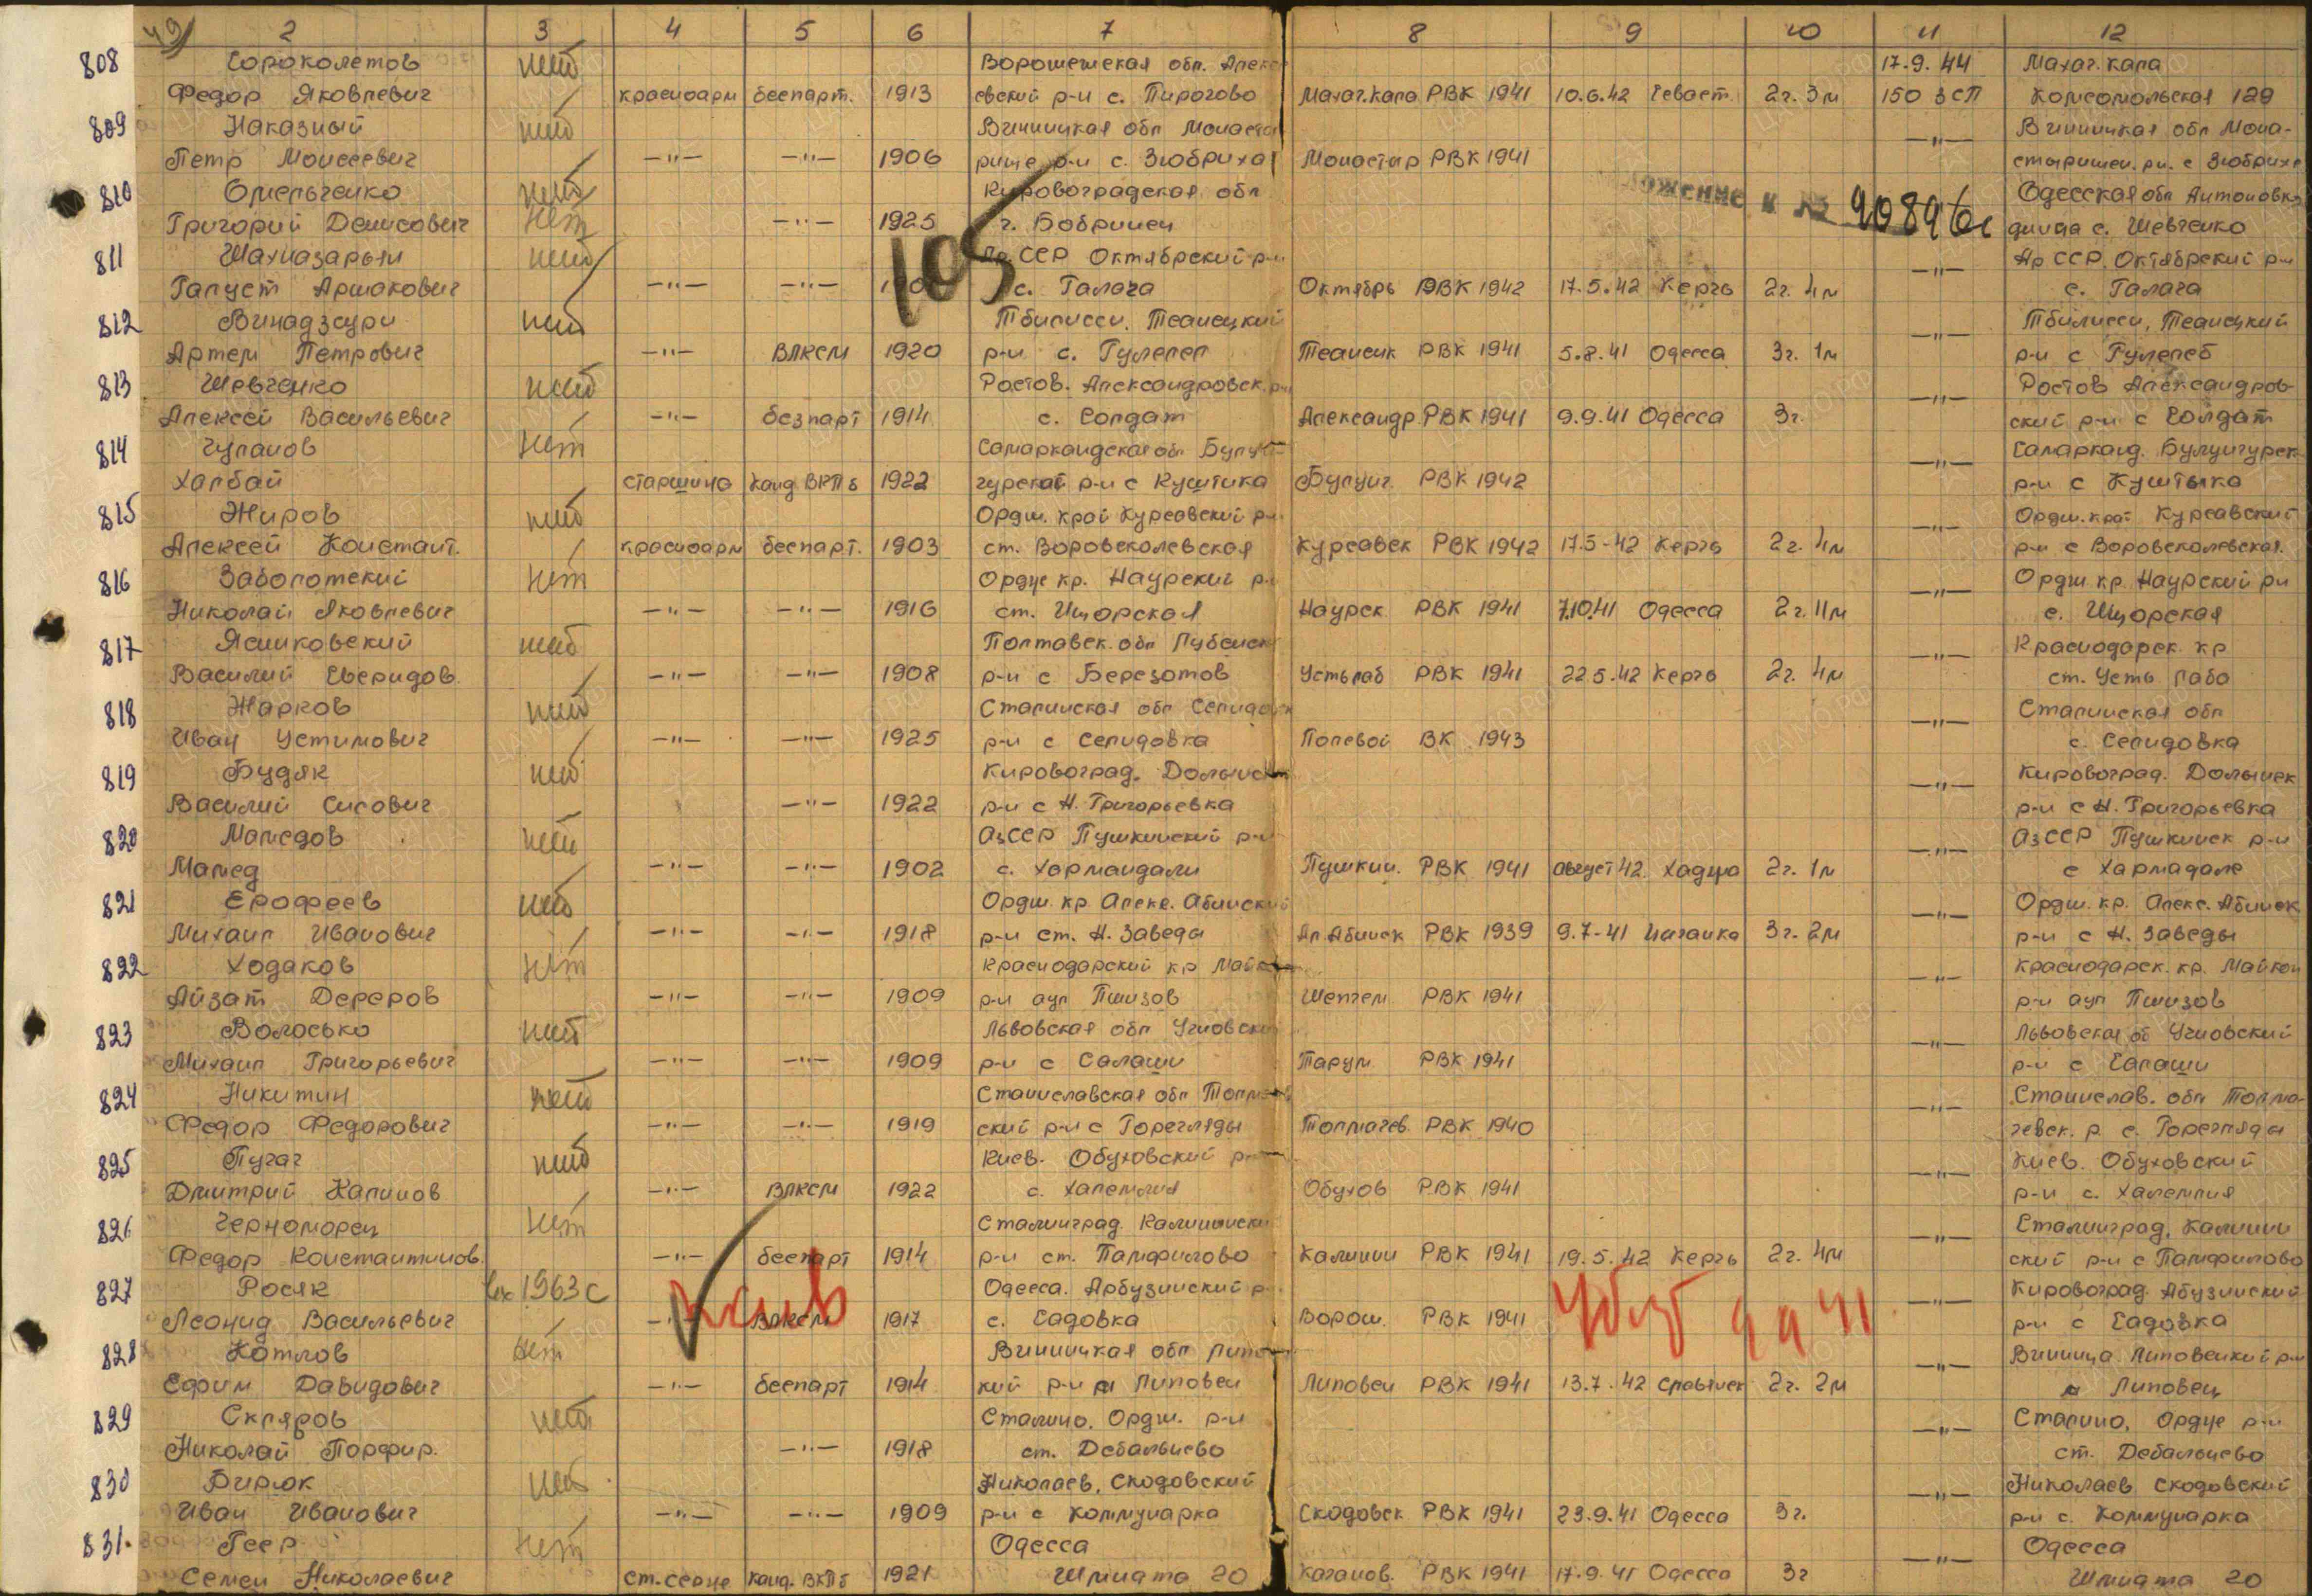 49 2 3 4 5 6 7 8 9 10 11 12
808 Сороколетов нет Ворошемская обл. Алекс 17.9.44 Махач.кала
Федор Яковлевич красноарм беспарт. 1913 евский р-н с. Пирогово Махач.кала РВК 1941 10.6.42 Севаст. 2г. 3м 150 зсп Комсомольская 129
809 Наказный нет Винницкая обл Монаста —"— Винницкая обл Мона-
Петр Моисеевич —"— —"— 1906 рище р-н с. Зюбриха Монастыр РВК 1941 стырищен. рн. с Зюбриха
810 Омельченко нет Кировоградская обл ожение к № 90896с Одесская обл Антоновка
Григорий Денисович нет —"— 1925 г. Бобринец динна с. Шевченко
811 Шахназарьян нет Ар ССР Октябрский р-н —"— Ар ССР. Октябрский р-н
Галуст Аршакович —"— —"— 105 с. Галача Октябрь РВК 1942 17.5.42 Керчь 2г. 4м с. Галача
812 Винадзаури нет Тбилисси. Теанецкий —"— Тбилисси, Теанецкий
Артем Петрович —"— ВЛКСМ 1920 р-н с. Гулелеп Теанецк РВК 1941 5.8.41 Одесса 3г. 1м р-н с Гулелеб
813 Шевченко нет Ростов. Александровск. р-н —"— Ростов Александров-
Алексей Васильевич —"— безпарт 1914 с. Солдат Александр. РВК 1941 9.9.41 Одесса 3г. ский р-н с Солдат
814 Чупанов нет Самаркандская обл Булун —"— Самарканд. Булунгурск
Халбай старшина Канд ВКПб 1922 гурской р-н с Куштика Булунг РВК 1942 р-н с Куштыка
815 Жиров нет Ордж. край Курсавский р-н —"— Ордж. край Курсавский
Алексей Констант. красноарм беспарт. 1903 ст. Воровсколевская Курсавск РВК 1942 17.5-42 Керчь 2г. 4м р-н с Воровсколевская
816 Заболотский нет Ордже кр. Наурский р-н —"— Ордж кр. Наурский рн
Николай Яковлевич —"— —"— 1916 ст. Ищорская Наурск РВК 1941 7.10.41 Одесса 2г. 11м с. Ищорская
817 Ясниковский нет Полтавск. обл Лубенск —"— Краснодарск. кр
Василий Свиридов. —"— —"— 1908 р-н с Березотов Устьлаб РВК 1941 22.5.42 Керчь 2г. 4м ст. Усть Лаба
818 Жарков нет Сталинская обл Селидовск —"— Сталинская обл
Иван Устимович —"— —"— 1925 р-н с Селидовка Полевой ВК 1943 с. Селидовка
819 Будяк нет Кировоград. Долынск —"— Кировоград. Долынск
Василий Сисович —"— 1922 р-н с Н. Григорьевка р-н с Н. Григорьевка
820 Мамедов нет АзССР Пушкинский р-н —"— АзССР Пушкинск р-н
Мамед —"— —"— 1902 с. Хармандали Пушкин. РВК 1941 август 42. 2г. 1м с Хармадале
821 Ерофеев нет Ордж. кр Алекс. Абинский —"— Ордж. кр. Алекс. Абинск
Михаил Иванович —"— —"— 1918 р-н ст. Н. Заведа Ал. Абинск РВК 1939 9.7-41 3г. 2м р-н с Н. Заведы
822 Ходаков нет Краснодарский кр Майк —"— Краснодарск. кр. Майкоп
Айзат Дереров —"— —"— 1909 р-н аул Пшизов Шенгем РВК 1941 р-н аул Пшизов
823 Волосько нет Львовская обл Угновски —"— Львовская об Угновский
Михаил Григорьевич —"— —"— 1909 р-н с Салаши Тарум РВК 1941 р-н с Салаши
824 Никитин нет Станиславская обл Толма —"— Станислав. обл Толма-
Федор Федорович —"— —"— 1919 ский р-н с Горегляды Толмачев. РВК 1940 чевск. р. с. Горегляды
825 Пугач нет Киев. Обуховский р-н —"— Киев. Обуховский
Дмитрий Калинов —"— ВЛКСМ 1922 с. Халемлия Обухов РВК 1941 р-н с. Халемлия
826 Черноморец нет Сталинград. Калининск —"— Сталинград, Калинин
Федор Константинов. —"— беспарт 1914 р-н ст. Панфилово Калинин РВК 1941 19.5.42 Керчь 2г. 4м ский р-н с Панфилово
827 Росяк вх 1963с Одесса. Арбузинский р- —"— Кировоград Абузинский
Леонид Васильевич —"— ВЛКСМ 1917 с. Садовка Ворош. РВК 1941 р-н с Садовка
828 Котлов нет Винницкая обл Липов —"— Винница Липовецкий р-н
Ефим Давидович —"— беспарт 1914 кий р-н Липовец Липовец РВК 1941 13.7.42 Славянск 2г. 2м Липовец
829 Скляров нет Сталино. Ордж. р-н —"— Сталино, Ордже р-н
Николай Порфир. —"— 1918 ст. Дебальцево ст. Дебальцево
830 Бирюк нет Николаев, Скодовский —"— Николаев Скодовский
Иван Иванович —"— —"— 1909 р-н с Коммунарка Скодовск РВК 1941 23.9.41 Одесса 3г. р-н с. Коммунарка
831. Геер нет Одесса —"— Одесса
Семен Николаевич ст. серже канд. ВКПб 1921 Шмидта 20 Каганов. РВК 1941 17.9.41 Одесса 3г Шмидта 20